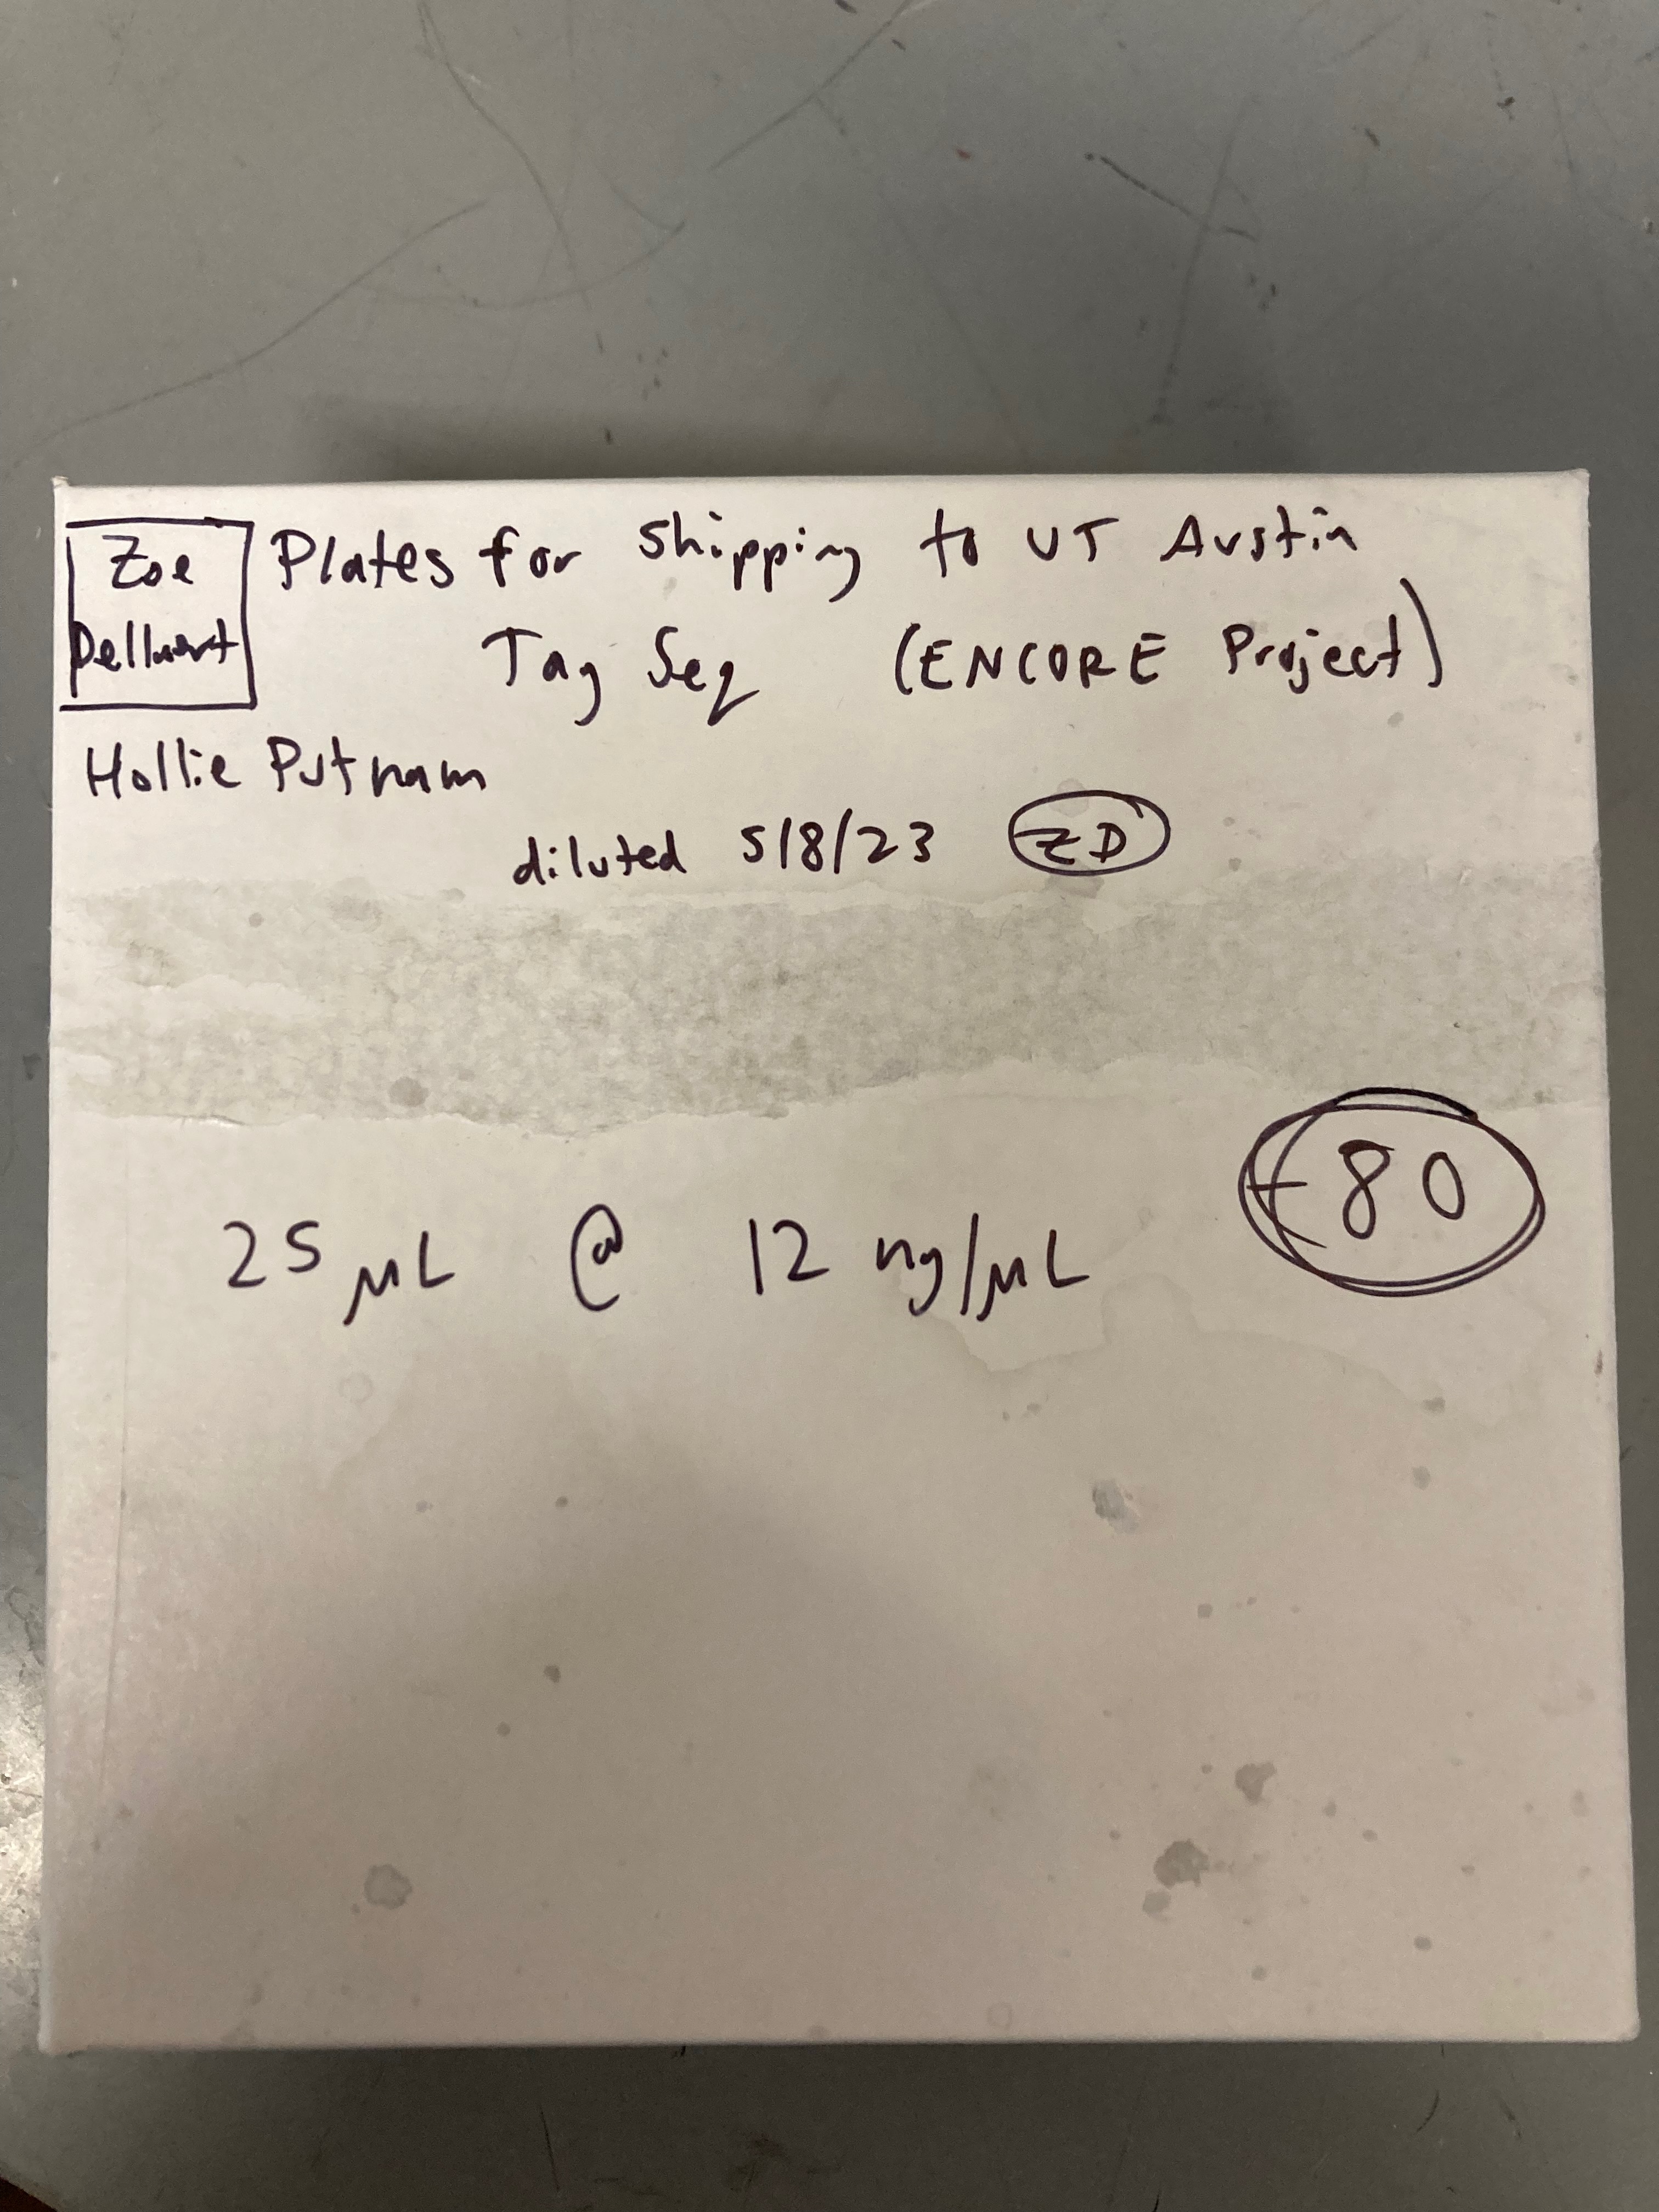 Zoe
Dellaert
Plates for shipping to UT Austin
Tag Seq (ENCORE Project)
Hollie Putnam
diluted 5/8/23 ZD
-80
25 µL @ 12 ng/µL